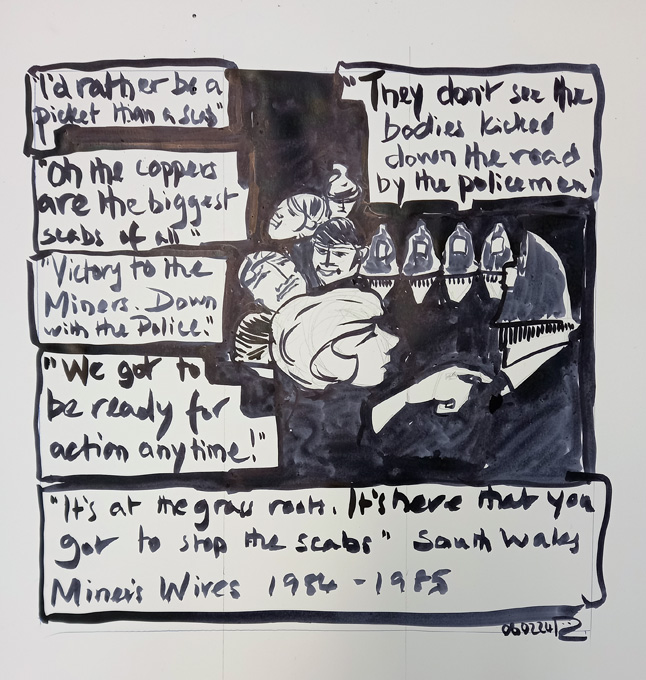 "I'd rather be a
picket than a scab"
"Oh the coppers
are the biggest
scabs of all"
"Victory to the
Miners. Down
with the Police."
"We got to
be ready for
action anytime!"
"They don't see the
bodies kicked
down the road
by the policemen"
"It's at the grass roots. It's here that you
got to stop the scabs" South Wales
Miner's Wives 1984 - 1985
060224